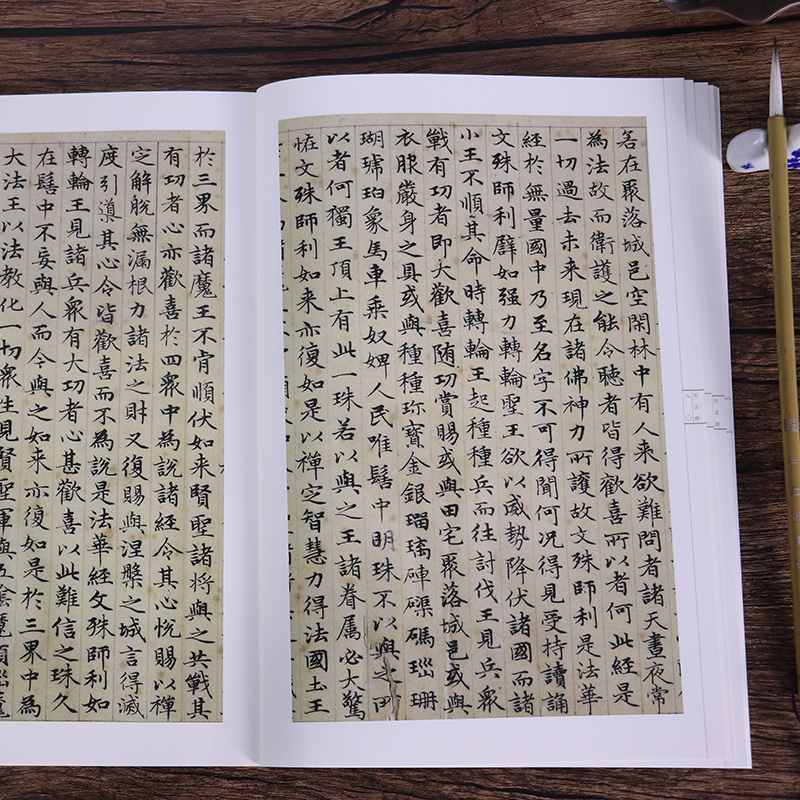 若在聚落城邑空閑林中有人来欲難問者諸天晝夜常
為法故而衛護之能令聽者皆得歡喜所以者何此経是
一切過去未来現在諸佛神力所護故文殊師利是法華
経於無量國中乃至名字不可得聞何況得見受持讀誦
文殊師利譬如强力轉輪聖王欲以威勢降伏諸國而諸
小王不順其命時轉輪王起種種兵而往討伐王見兵衆
戰有功者即大歡喜随功賞賜或與田宅聚落城邑或與
衣服嚴身之具或與種種珎寶金銀瑠璃硨磲碼瑙珊
瑚琥珀象馬車乗奴婢人民唯髻中明珠不以與之所
以者何獨王頂上有此一珠若以與之王諸眷属必大驚
恠文殊師利如来亦復如是以禪定智慧力得法國土王
於三界而諸魔王不肯順伏如来賢聖諸將與之共戰其
有功者心亦歡喜於四衆中為說諸経令其心悅賜以禪
定解脫無漏根力諸法之財又復賜與涅槃之城言得滅
度引導其心令皆歡喜而不為說是法華経文殊師利如
轉輪王見諸兵衆有大功者心甚歡喜以此難信之珠久
在髻中不妄與人而今與之如来亦復如是於三界中為
大法王以法教化一切衆生見賢聖軍與五陰魔煩惱魔